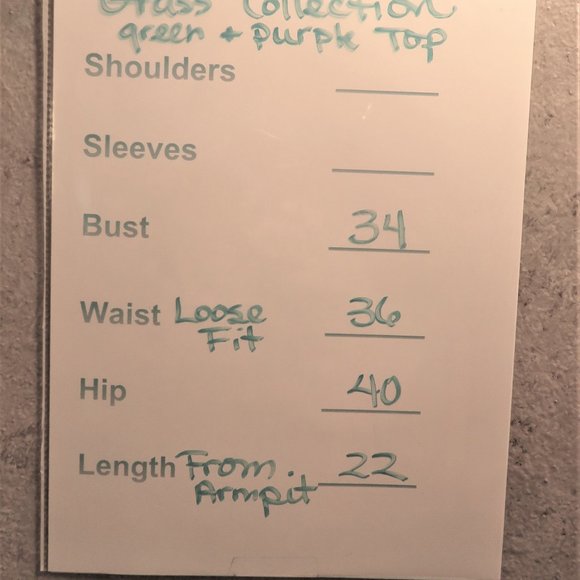 Grass Collection
green + purple Top
Shoulders
Sleeves
Bust 34
Waist Loose Fit 36
Hip 40
Length From Armpit 22